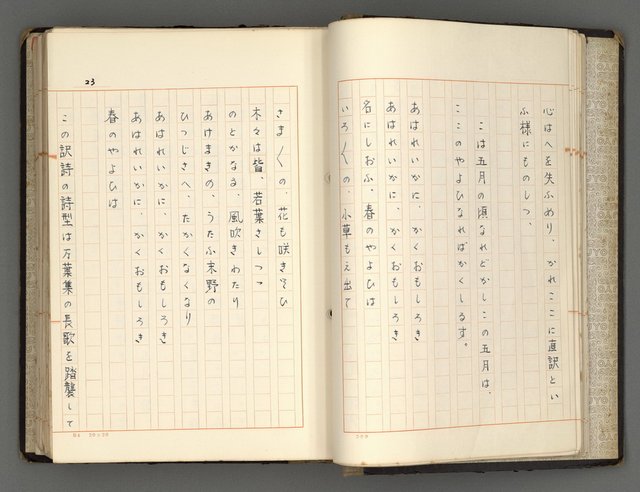 心はへを失ふめり、かれここに直訳とい
ふ様にものしつ、
こは五月の頃なれどかしこの五月は、
ここのやよひなればかくしるす。
あはれいかに、かくおもしろき
あはれいかに、かくおもしろき
名にしおふ、春のやよひは
いろ〱の、小草もえ出て
23
さま〱の、花も咲きそひ
木々は皆、若葉さしつつ
のとかなる、風吹きわたり
あけまきの、うたふ末野の
ひつじさへ、たかくなくなり
あはれいかに、かくおもしろき
あはれいかに、かくおもしろき
春のやよひは
この訳詩の詩型は万葉集の長歌を踏襲して